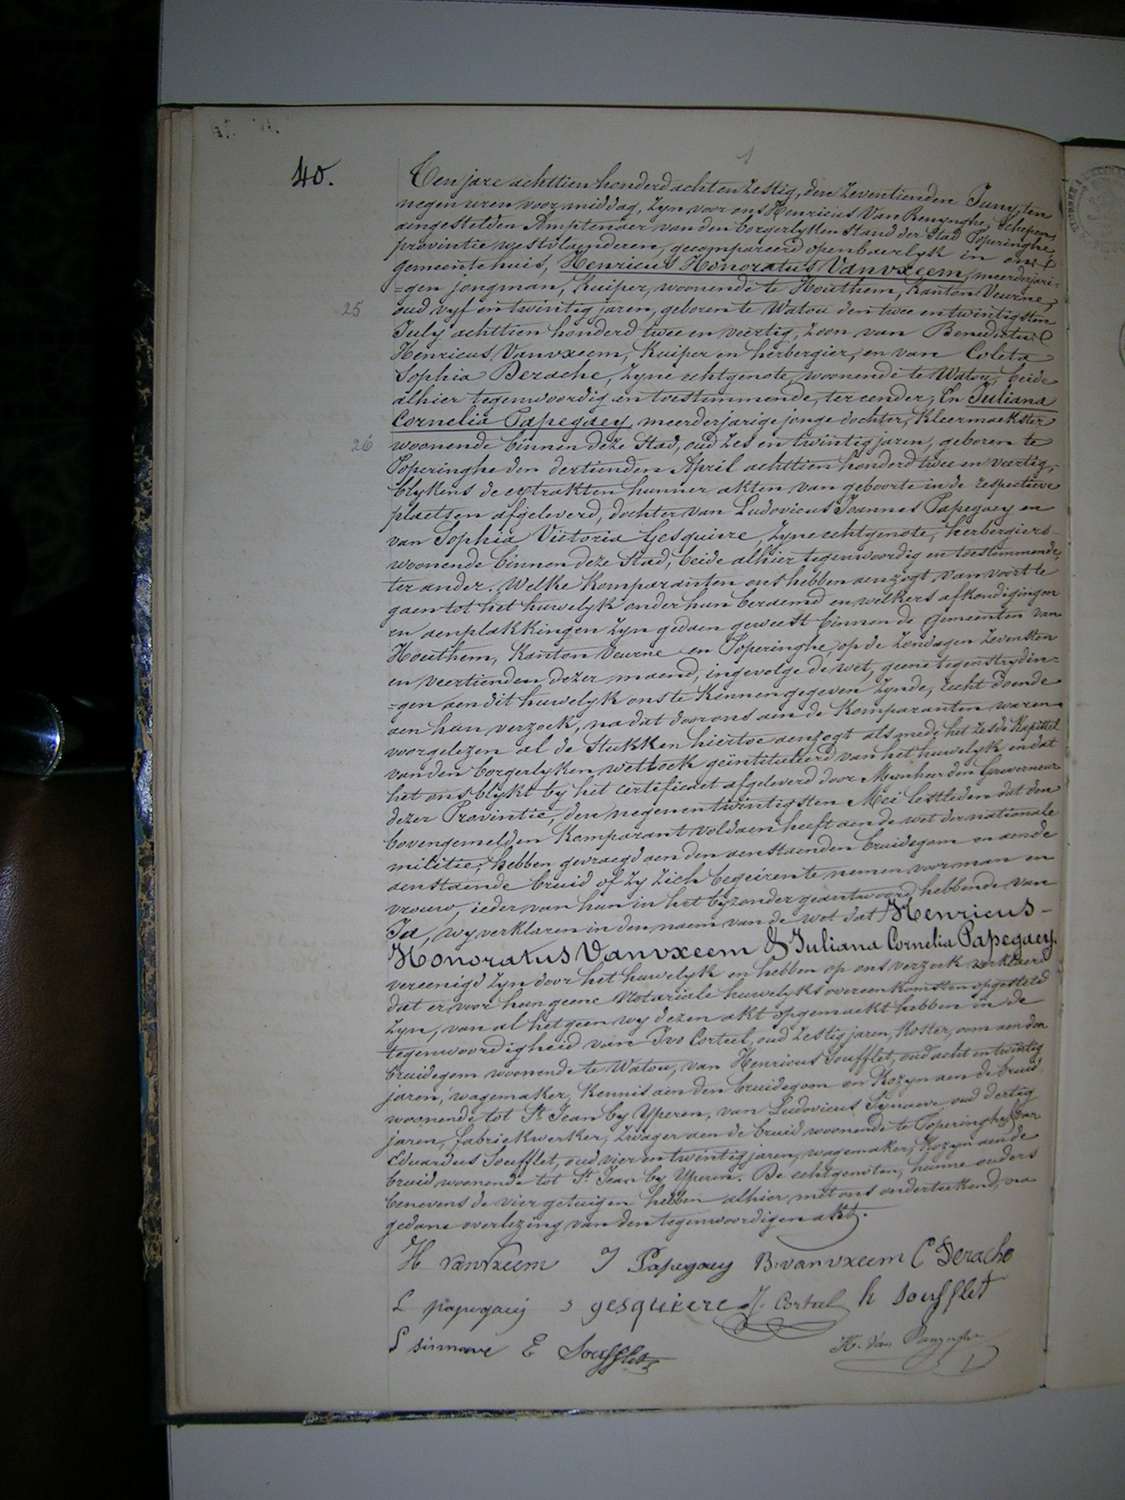 40.
Ten jare achttien honderd acht en zestig, den zeventienden Juny ten
negen uren voormiddag, zyn voor ons Henricus Van Renynghe, schepen,
aangestelden Amptenaer van den borgerlyken stand der stad Poperinghe
provintie westvlaenderen, gecompareerd openbaerlyk in ons
gemeentehuis, Henricus Honoratus Vanvxeem, meerderjari-
=gen jongman, kuiper, woonende te Houthem, kanton Veurne,
25 oud vyf en twintig jaren, geboren te Watou den twee en twintigsten
July achttien honderd twee en veertig, zoon van Benedictus
Henricus Vanvxeem, kuiper en herbergier, en van Coleta
Sophia Derache, zyne echtgenote, woonende te Watou, beide
alhier tegenwoordig en toestemmende, ter eender; En Juliana
Cornelia Papegaey, meerderjarige jonge dochter, kleermaekster
26 woonende binnen deze stad, oud zes en twintig jaren, geboren te
Poperinghe den dertienden April achttien honderd twee en veertig,
blykens de extrakten hunner akten van geboorte in de respective
plaetsen afgeleverd, dochter van Ludovicus Joannes Papegaey en
van Sophia Victoria Gesquiere, zyne echtgenote, herbergiers
woonende binnen deze stad, beide alhier tegenwoordig en toestemmende,
ter ander. Welke komparanten ons hebben aenzogt van voort te
gaen tot het huwelyk onder hun beraemd en welkers afkondigingen
en aenplakkingen zyn gedaen geweest binnen de gemeenten van
Houthem, kanton Veurne en Poperinghe, op de zondagen zevensten
en veertienden dezer maend, ingevolge de wet, geene tegenstrydin-
=gen aen dit huwelyk ons te kennen gegeven zynde, recht doende
aen hun verzoek, na dat door ons aen de komparanten waren
voorgelezen al de stukken hiertoe aenzogt als mede het zesde kapittel
van den borgerlyken wetboek geintituleerd van het huwelyk en dat
het ons blykt by het certificaet afgeleverd door Mynheer den Gouverneur
dezer Provintie, den negenentwintigsten Mei lestleden dat den
bovengemelden komparant voldaen heeft aen de wet der nationale
militie, hebben gevraegd aen den aenstaenden bruidegom en aen de
aenstaende bruid of zy zich begeiren te nemen voor man en
vrouw, ieder van hun in het byzonder geantwoord hebbende van
Ja, wy verklaren in den naem van de wet dat Henricus-
Honoratus Vanvxeem & Juliana Cornelia Papegaey.
vereenigd zyn door het huwelyk en hebben op ons verzoek verklaerd
dat er voor hun geene Notariale huwelyks overeenkomsten opgesteld
zyn, van al het geen wy dezen akt opgemaekt hebben in de
tegenwoordigheid van Ivo Corteel, oud zestig jaren, koster, oom aen den
bruidegom woonende te Watou, van Henricus Soufflet, oud acht en twintig
jaren, wagemaker, kennis aen den bruidegom en kozyn aen de bruid
woonende tot St Jean by Yperen, van Ludovicus Synaeve oud dertig
jaren, fabriekwerker, zwager aen de bruid woonende te Poperinghe, van
Eduardus Soufflet, oud vier en twintig jaren, wagemaker, kozyn aen de
bruid woonende tot St Jean by Yperen. De echtgenoten, hunne ouders
benevens de vier getuigen hebben alhier met ons onderteekend, na
gedane overlezing van den tegenwoordigen akt.
H vanvxeem J Papegaey B. vanvxeem C Derache
L papegaeij s gesquiere J. Corteel h soufflet
L sinnave E Soufflet H. Van Renynghe